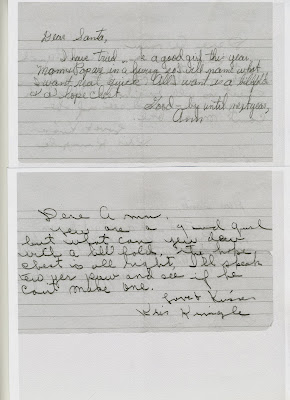 Dear Santa,
I have tried to be a good girl this year.
Mommy & Papa in a hurry so will name what
I want real quick. All I want is a billfold
& a hope chest.
Good-by until next year,
Ann
Dere Ann,
you are a good gurl
but what can you dew
with a bill fold. The hope
chest is all right. I'll speak
to yer paw and see if he
cant make one.
Love & Kisses
Kris Kringle